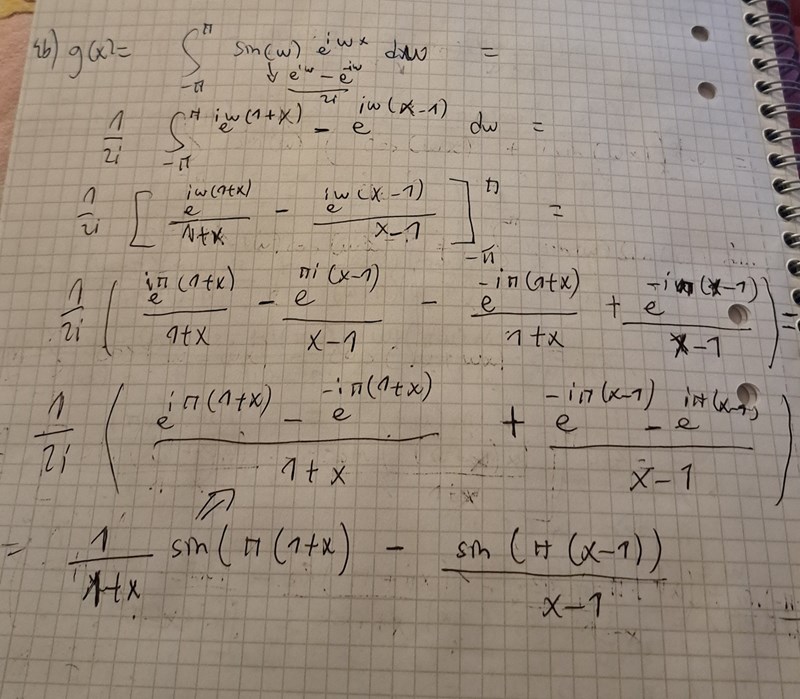 2b) g(x)= ∫_{-π}^{π} sin(w) e^{iwx} dw =
↓ (e^{iw} - e^{-iw})/2i
1/2i ∫_{-π}^{π} e^{iw(1+x)} - e^{iw(x-1)} dw =
1/2i [ e^{iw(1+x)}/(1+x) - e^{iw(x-1)}/(x-1) ]_{-π}^{π} =
1/2i ( e^{iπ(1+x)}/(1+x) - e^{πi(x-1)}/(x-1) - e^{-iπ(1+x)}/(1+x) + e^{-iπ(x-1)}/(x-1) ) =
1/2i ( (e^{iπ(1+x)} - e^{-iπ(1+x)})/(1+x) + (e^{-iπ(x-1)} - e^{iπ(x-1)})/(x-1) )
= 1/(1+x) sin(π(1+x) - sin(π(x-1))/(x-1)